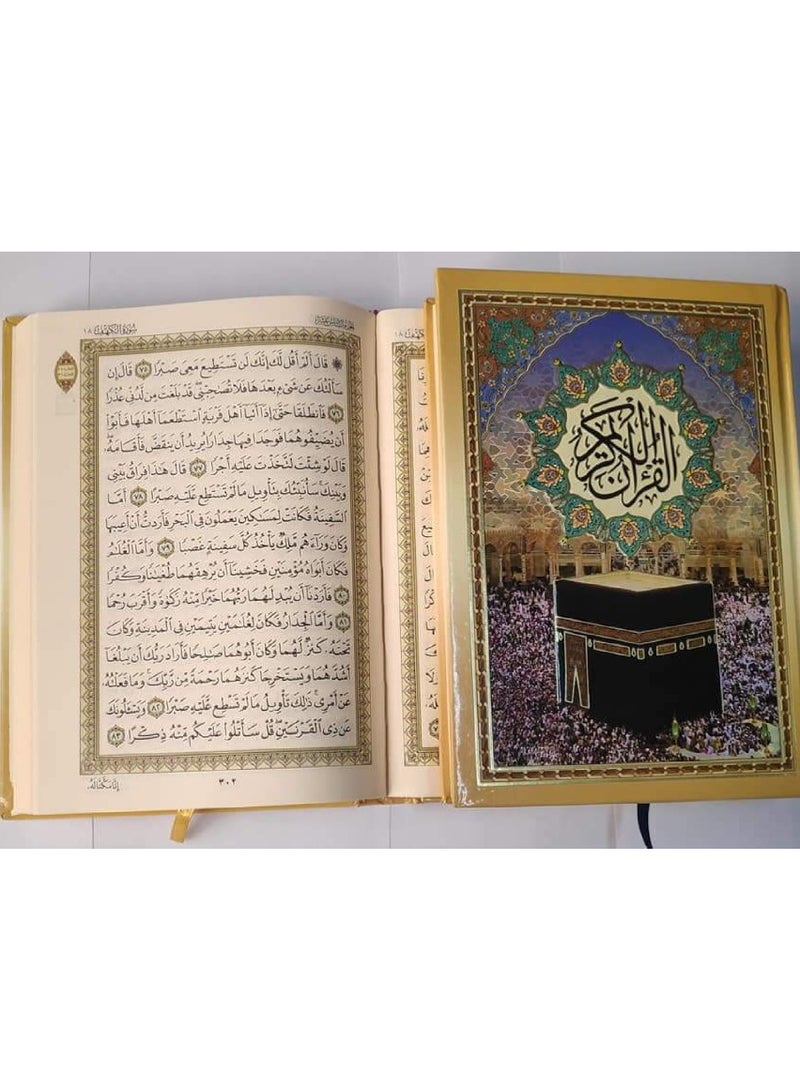 الجزء السادس عشر
سُورَةُ الكَهْفِ ١٨
۞ قَالَ أَلَمْ أَقُل لَّكَ إِنَّكَ لَن تَسْتَطِيعَ مَعِىَ صَبْرًا ٧٥ قَالَ إِن
سَأَلْتُكَ عَن شَىْءٍۭ بَعْدَهَا فَلَا تُصَٰحِبْنِى قَدْ بَلَغْتَ مِن لَّدُنِّى عُذْرًا
٧٦ فَٱنطَلَقَا حَتَّىٰٓ إِذَآ أَتَيَآ أَهْلَ قَرْيَةٍ ٱسْتَطْعَمَآ أَهْلَهَا فَأَبَوْا۟
أَن يُضَيِّفُوهُمَا فَوَجَدَا فِيهَا جِدَارًا يُرِيدُ أَن يَنقَضَّ فَأَقَامَهُۥ
قَالَ لَوْ شِئْتَ لَتَّخَذْتَ عَلَيْهِ أَجْرًا ٧٧ قَالَ هَٰذَا فِرَاقُ بَيْنِى
وَبَيْنِكَ سَأُنَبِّئُكَ بِتَأْوِيلِ مَا لَمْ تَسْتَطِع عَّلَيْهِ صَبْرًا ٧٨ أَمَّا
ٱلسَّفِينَةُ فَكَانَتْ لِمَسَٰكِينَ يَعْمَلُونَ فِى ٱلْبَحْرِ فَأَرَدتُّ أَنْ أَعِيبَهَا
وَكَانَ وَرَآءَهُم مَّلِكٌ يَأْخُذُ كُلَّ سَفِينَةٍ غَصْبًا ٧٩ وَأَمَّا ٱلْغُلَٰمُ
فَكَانَ أَبَوَاهُ مُؤْمِنَيْنِ فَخَشِينَآ أَن يُرْهِقَهُمَا طُغْيَٰنًا وَكُفْرًا
٨٠ فَأَرَدْنَآ أَن يُبْدِلَهُمَا رَبُّهُمَا خَيْرًا مِّنْهُ زَكَوٰةً وَأَقْرَبَ رُحْمًا
٨١ وَأَمَّا ٱلْجِدَارُ فَكَانَ لِغُلَٰمَيْنِ يَتِيمَيْنِ فِى ٱلْمَدِينَةِ وَكَانَ
تَحْتَهُۥ كَنزٌ لَّهُمَا وَكَانَ أَبُوهُمَا صَٰلِحًا فَأَرَادَ رَبُّكَ أَن يَبْلُغَآ
أَشُدَّهُمَا وَيَسْتَخْرِجَا كَنزَهُمَا رَحْمَةً مِّن رَّبِّكَ وَمَا فَعَلْتُهُۥ
عَنْ أَمْرِى ذَٰلِكَ تَأْوِيلُ مَا لَمْ تَسْطِع عَّلَيْهِ صَبْرًا ٨٢ وَيَسْـَٔلُونَكَ
عَن ذِى ٱلْقَرْنَيْنِ قُلْ سَأَتْلُوا۟ عَلَيْكُم مِّنْهُ ذِكْرًا ٨٣
٣٠٢
إِنَّا مَكَّنَّا لَهُ
القرآن الكريم